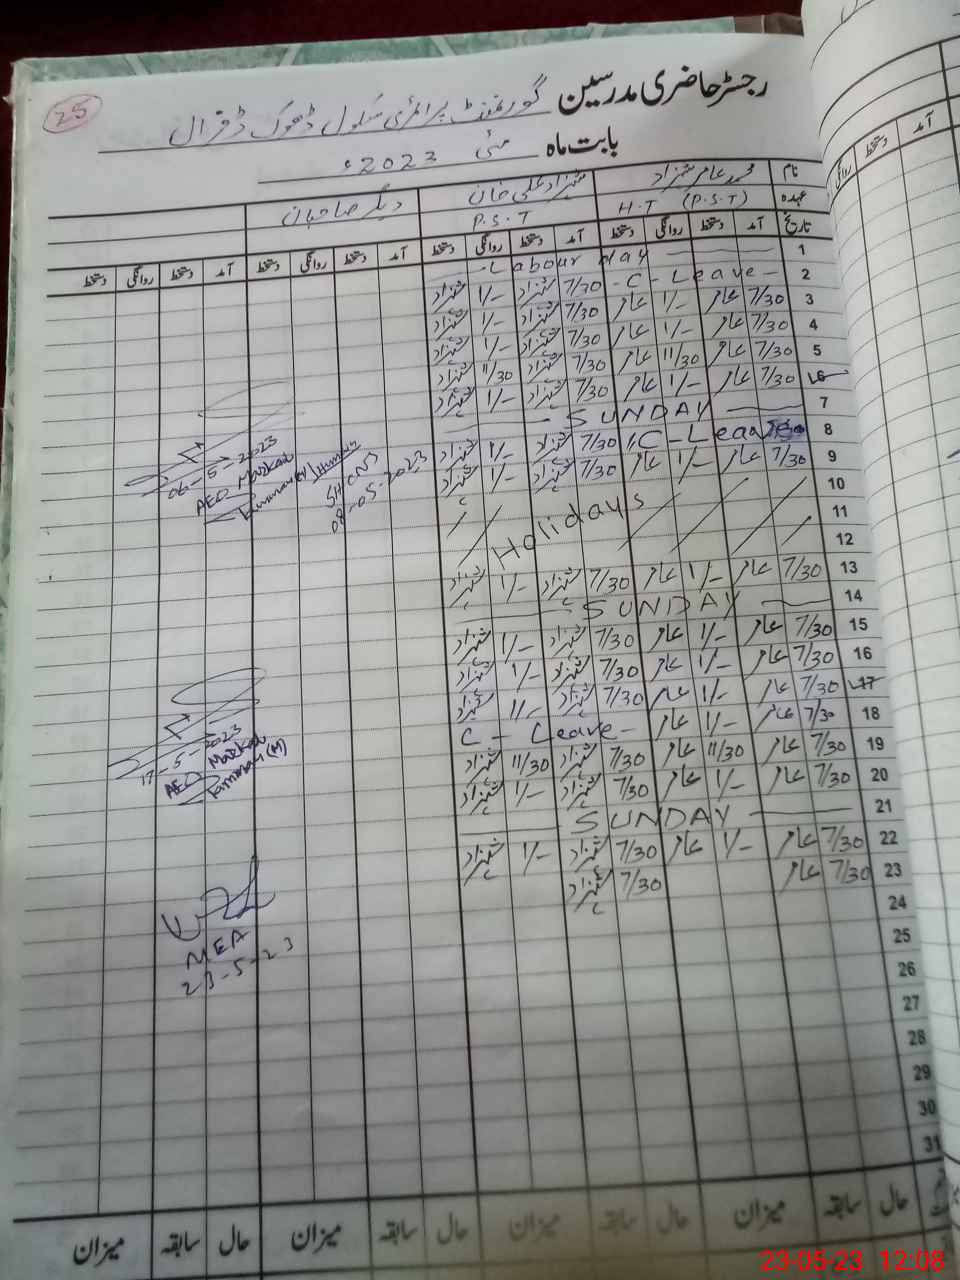 25
رجسٹر حاضری مدرسین گورنمنٹ پرائمری سکول ڈھوک
بابت ماہ مئی 2023ء
نام محمد عامر شہزاد شہزاد علی خان دیگر صاحبان
عہدہ H.T (P.S.T) P.S.T
تاریخ آمد دستخط روانگی دستخط آمد دستخط روانگی دستخط آمد دستخط روانگی دستخط آمد دستخط روانگی دستخط
1 Labour day
2 C - Leave - 7/30 شہزاد 1/- شہزاد
3 7/30 عامر 1/- عامر 7/30 شہزاد 1/- شہزاد
4 7/30 عامر 1/- عامر 7/30 شہزاد 1/- شہزاد
5 7/30 عامر 11/30 عامر 7/30 شہزاد 11/30 شہزاد
6 7/30 عامر 1/- عامر 7/30 شہزاد 1/- شہزاد
7 SUNDAY
8 C - Leave 7/30 شہزاد 1/- شہزاد
9 7/30 عامر 1/- عامر 7/30 شہزاد 1/- شہزاد
10
11 Holidays
12
13 7/30 عامر 1/- عامر 7/30 شہزاد 1/- شہزاد
14 SUNDAY
15 7/30 عامر 1/- عامر 7/30 شہزاد 1/- شہزاد
16 7/30 عامر 1/- عامر 7/30 شہزاد 1/- شہزاد
17 7/30 عامر 1/- عامر 7/30 شہزاد 1/- شہزاد
18 7/30 عامر 1/- عامر C - Leave -
19 7/30 عامر 11/30 عامر 7/30 شہزاد 11/30 شہزاد
20 7/30 عامر 1/- عامر 7/30 شہزاد 1/- شہزاد
21 SUNDAY
22 7/30 عامر 1/- عامر 7/30 شہزاد 1/- شہزاد
23 7/30 عامر 7/30 شہزاد
24
25
26
27
28
29
30
31
06-5-2023
AEO Markaz
08-05-2023
17-5-2023
AEO Markaz
(M)
MEA
23-5-23
حال سابقہ میزان حال سابقہ میزان حال سابقہ میزان حال سابقہ میزان
آمد دستخط روانگی
23-05-23 12:08